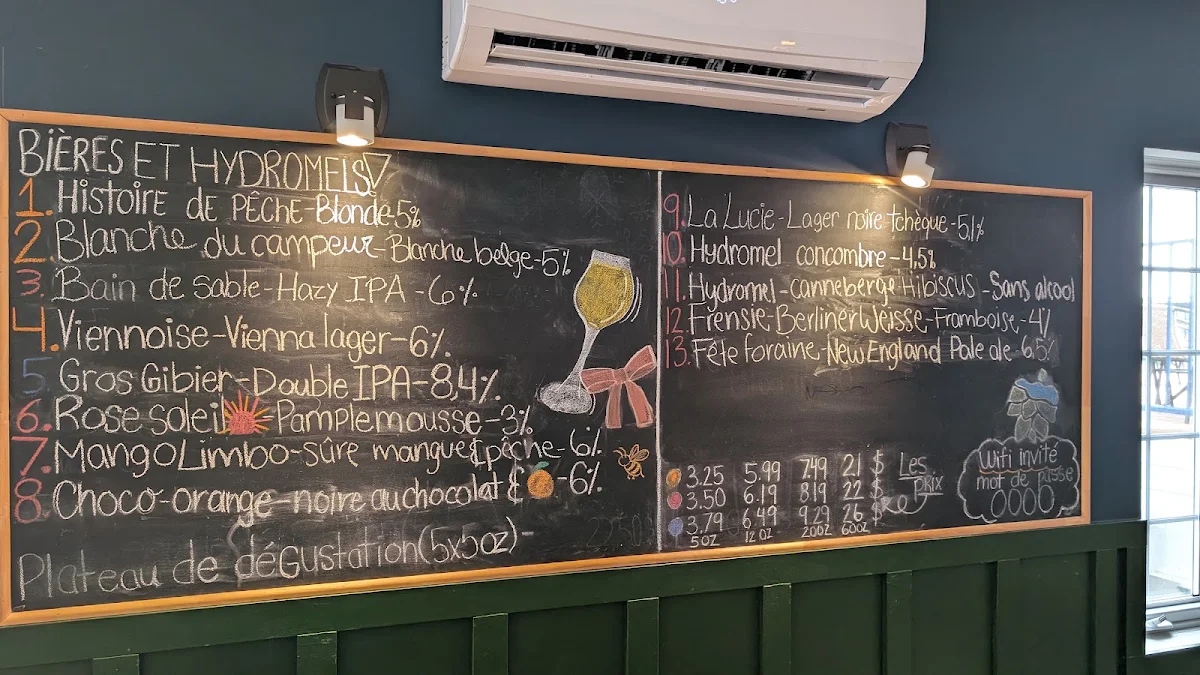 BIÈRES ET HYDROMELS!
1. Histoire de PÊCHE-Blonde-5%
2. Blanche du campeur-Blanche belge-5%
3. Bain de sable-Hazy IPA-6%
4. Viennoise-Vienna lager-6%
5. Gros Gibier-Double IPA-8,4%
6. Rose soleil-Pamplemousse-3%
7. Mango Limbo-sûre mangue & pêche-6%
8. Choco-orange-noire au chocolat & -6%
Plateau de déGustation (5x5oz)-
9. La Lucie-Lager noire tchèque-5,1%
10. Hydromel concombre-4,5%
11. Hydromel-canneberge Hibiscus-Sans alcool
12. Frensie-Berliner Weisse-Framboise-4%
13. Fête foraine-New England Pale ale-6,5%
3.25 5.99 7.49 21 $
3.50 6.19 8.19 22 $
3.79 6.49 9.29 26 $
5oz 12 oz 20oz 60oz
Les PRIX
Wifi invité
mot de passe
0000